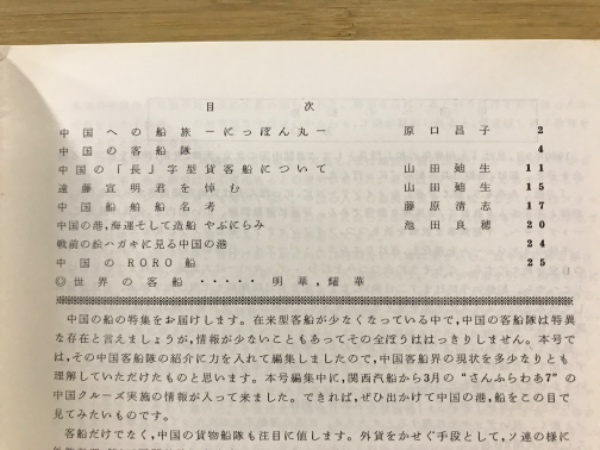 目 次
中国への船旅 ーにっぽん丸ー 原口昌子 2
中国の客船隊 4
中国の「長」字型貨客船について 山田廸生 11
遠藤宣明君を悼む 山田廸生 15
中国船舶船名考 藤原清志 17
中国の港,海運そして造船 やぶにらみ 池田良穂 20
戦前の絵ハガキに見る中国の港 24
中国のRORO船 25
◎世界の客船・・・・・明華,耀華
中国の船の特集をお届けします。在来型客船が少なくなっている中で,中国の客船隊は特異
な存在と言えましょうが,情報が少ないこともあってその全ぼうははっきりしません。本号で
は,その中国客船隊の紹介に力を入れて編集しましたので,中国客船界の現状を多少なりとも
理解していただけたものと思います。本号編集中に,関西汽船から3月の“さんふらわあ7”の
中国クルーズ実施の情報が入って来ました。できれば,ぜひ出かけて中国の港,船をこの目で
見てみたいものです。
客船だけでなく,中国の貨物船隊も注目に値します。外貨をかせぐ手段として,ソ連の様に